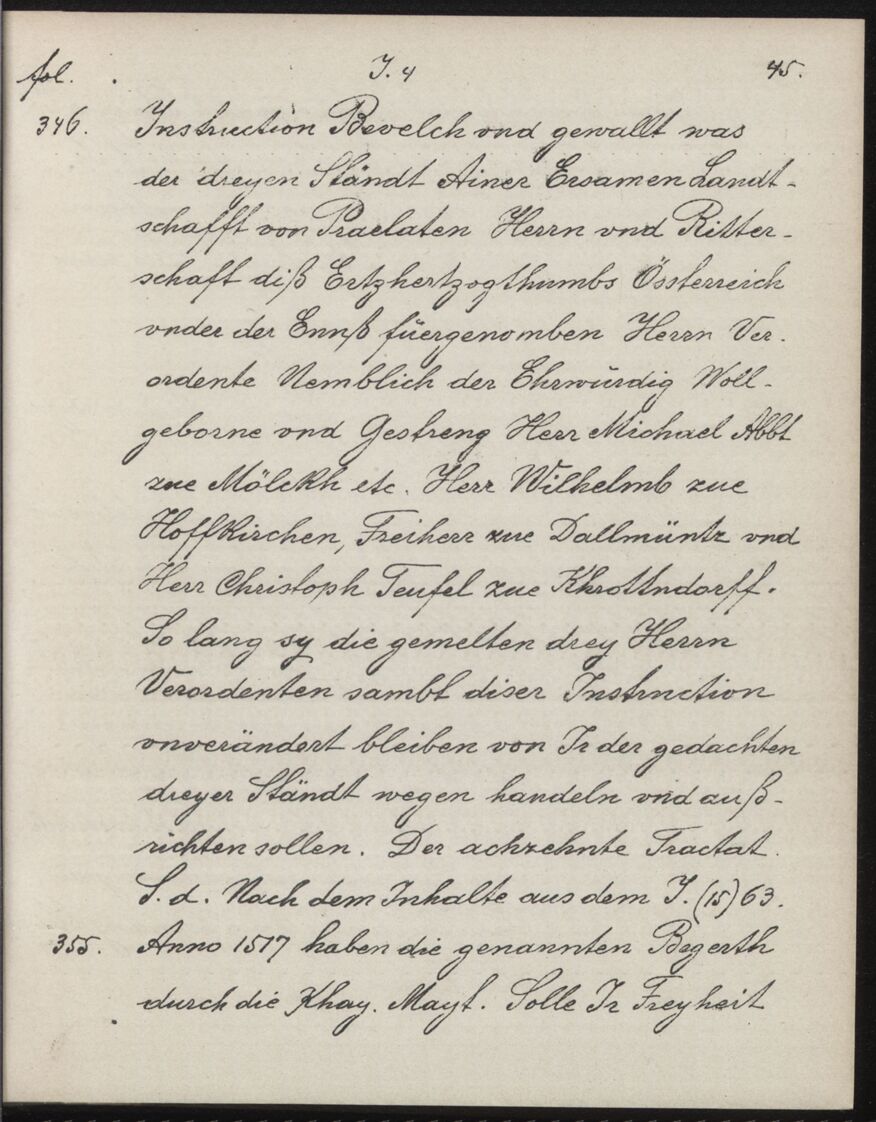 fol. J. 4 45.
346. Instruction Bevelch vnd gewallt was
der dreyen Ständt Ainer Ersamen Landt-
schafft von Praelaten Herrn vnd Ritter-
schaft diß Ertzhertzogthumbs Össterreich
vnder der Ennß füergenomben Herrn Ver-
ordente Nemblich der Ehrwürdig Woll-
geborne vnd Gestreng Herr Michael Abbt
zue Mölckh etc. Herr Wilhelmb zue
Hoffkirchen, Freiherr zue Dallmüntz vnd
Herr Christoph Teufel zue Khrottndorff.
So lang sy die gemelten drey Herrn
Verordenten sambt diser Instruction
vnverändert bleiben von Ir der gedachten
dreyer Ständt wegen handeln vnd auß-
richten sollen. Der achzehnte Tractat.
S. d. Nach dem Inhalte aus dem J. (15)63.
355. Anno 1517 haben die genannten Begerth
durch die Khay. Mayt. Solle Ir Freyheit